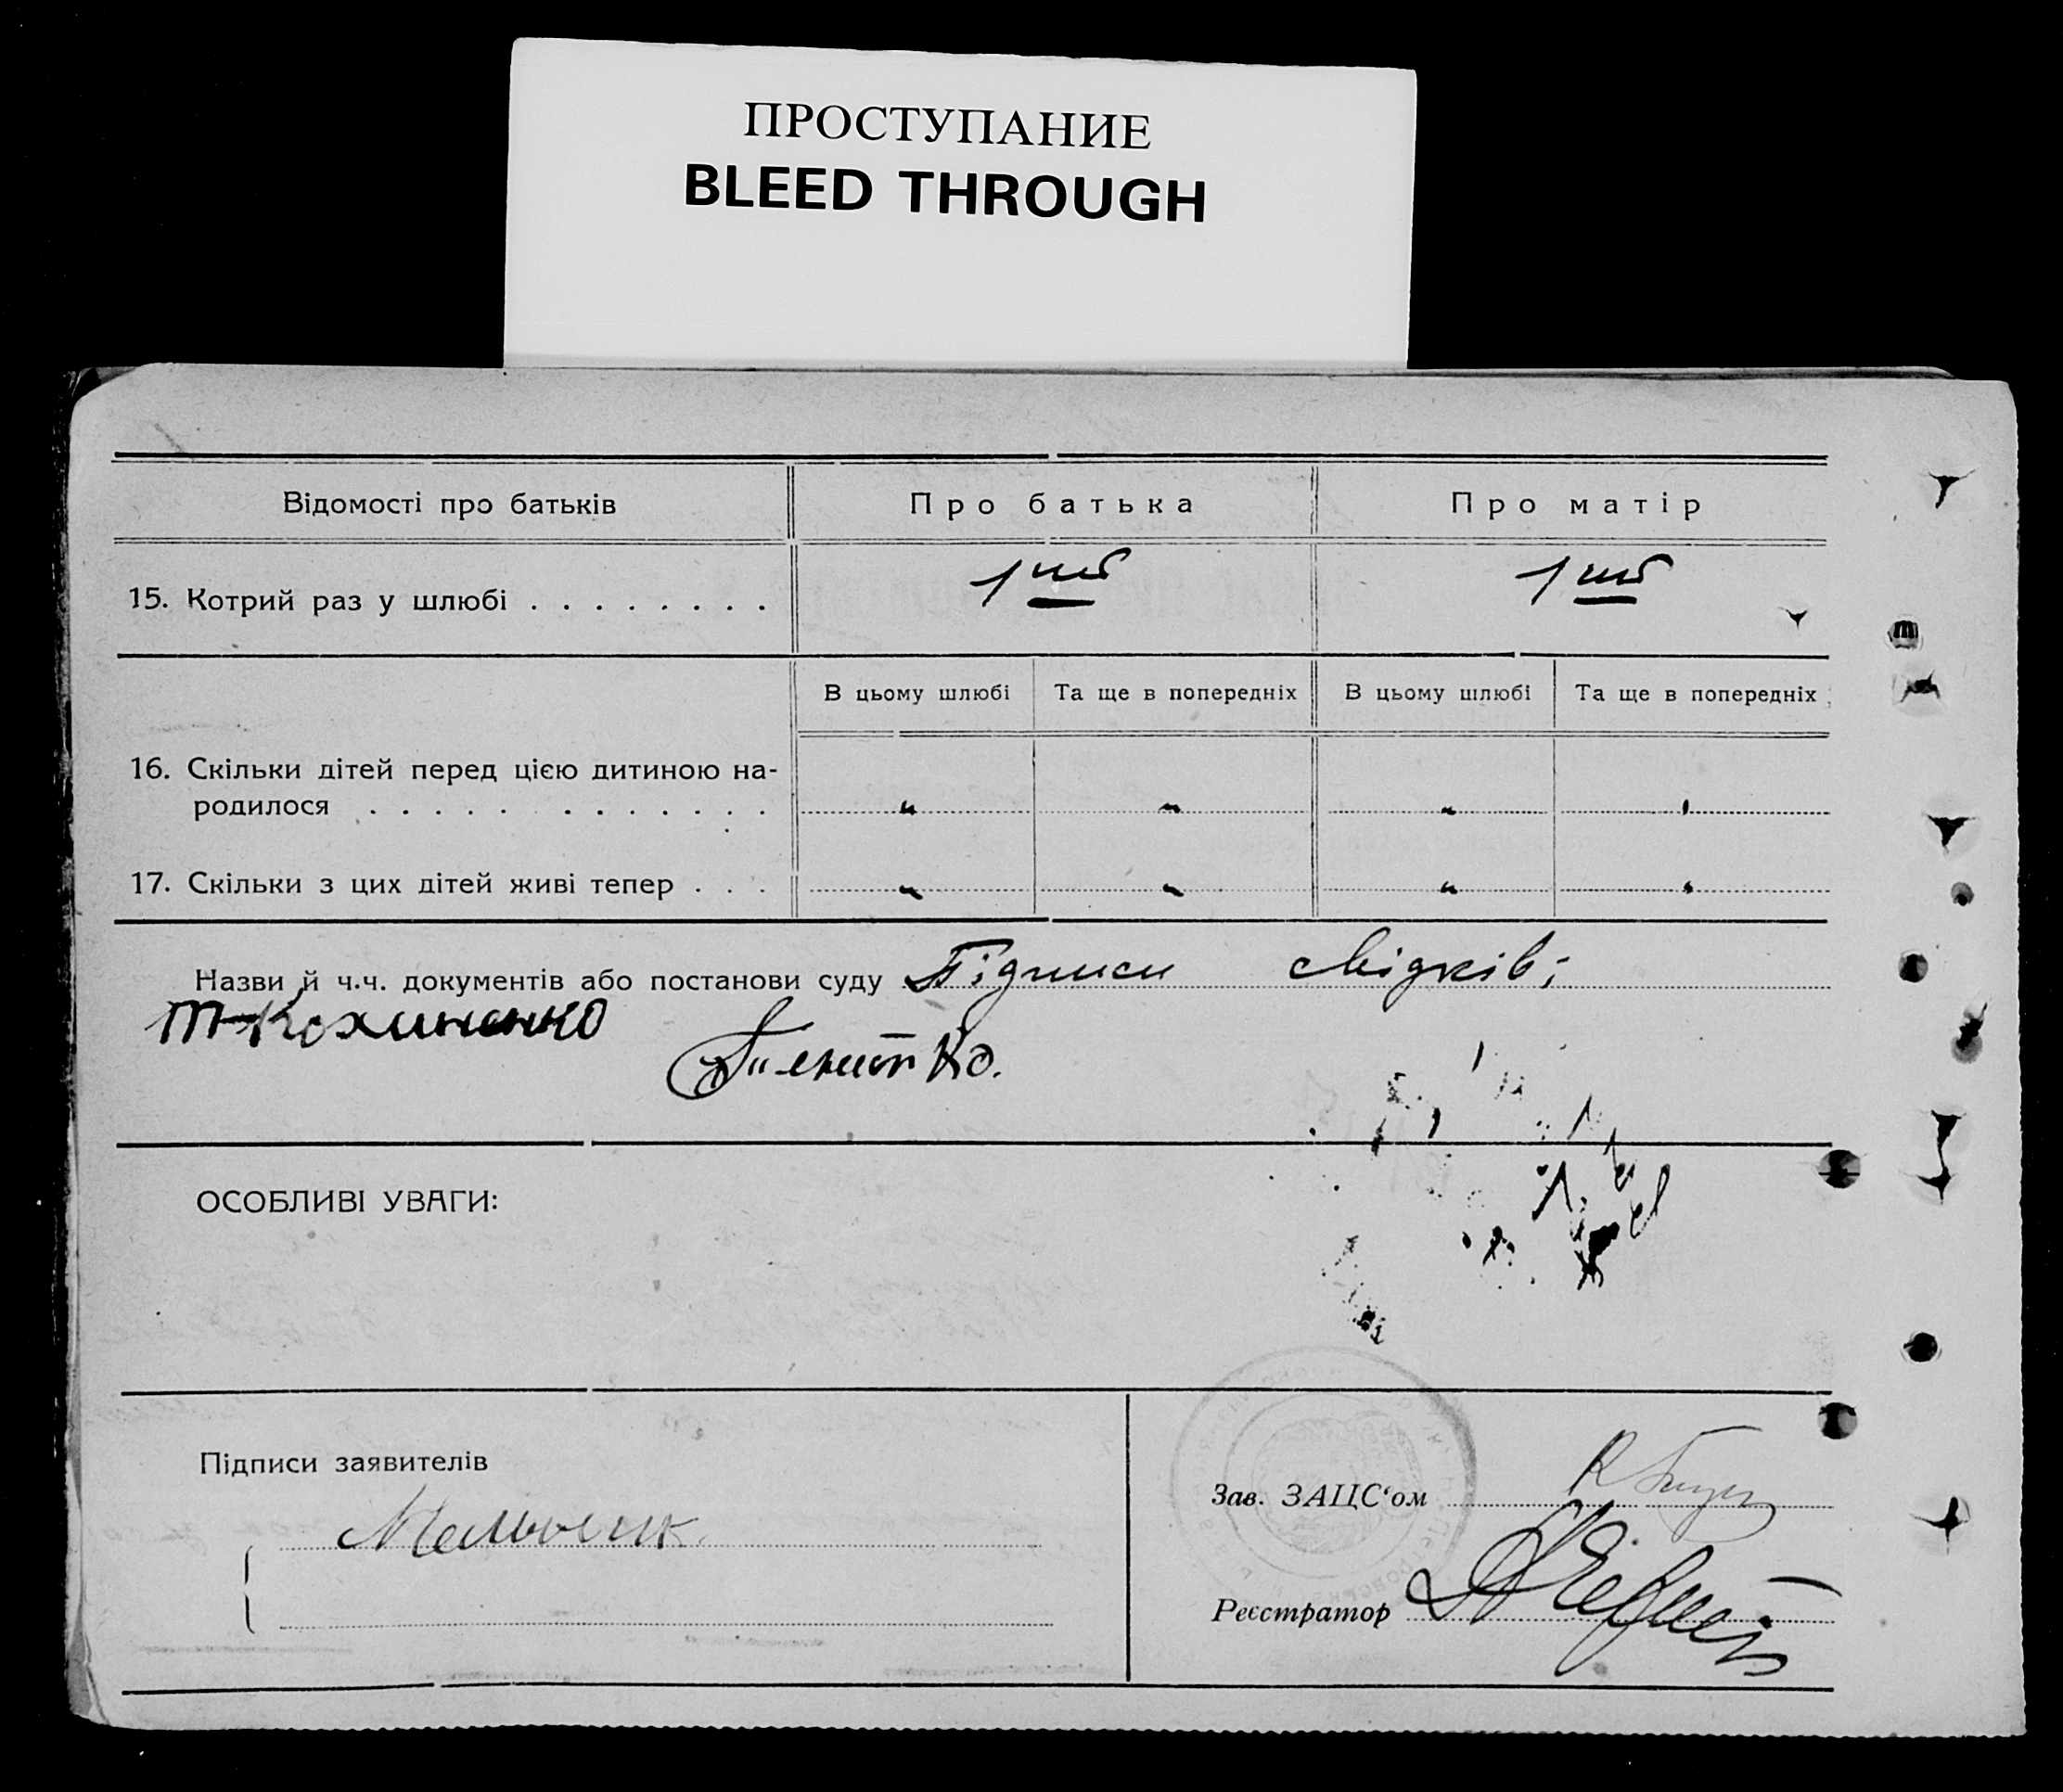 ПРОСТУПАНИЕ
BLEED THROUGH
Відомості про батьків Про батька Про матір
15. Котрий раз у шлюбі . . . . . . . . 1 1
В цьому шлюбі Та ще в попередніх В цьому шлюбі Та ще в попередніх
16. Скільки дітей перед цією дитиною на-
родилося . . . . . . . . . . . . . " " " "
17. Скільки з цих дітей живі тепер . . . " " " "
Назви й ч.ч. документів або постанови суду Підписи свідків:
ОСОБЛИВІ УВАГИ:
Підписи заявителів
Мельник.
Зав. ЗАЦС‘ом
Реєстратор